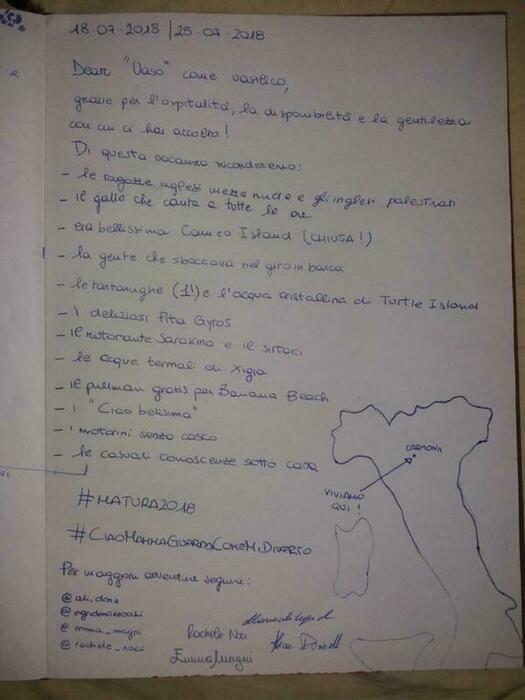 18.07.2018 | 25.07.2018
Dear "Vaso" come vasilico,
grazie per l'ospitalità, la disponibilità e la gentilezza
con cui ci hai accolto!
Di questa vacanza ricorderemo:
- le ragazze inglesi mezze nude e gli inglesi palestrati
- il gallo che canta a tutte le ore
- era bellissima Cameo Island (CHIUSA!)
- la gente che sboccava nel giro in barca
- le tartarughe (1!) e l'acqua cristallina di Turtle Island
- i deliziosi Pita Gyros
- il ristorante Sarakina e il sirtaki
- le acque termali di Xigia
- il pullman gratis per Banana Beach
- i "Ciao belisima"
- i motorini senza casco
- le casuali conoscenze sotto casa
CREMONA
VIVIAMO
QUI!
#MATURA2018
#CIAOMAMMAGUARDACOMEMIDIVERTO
Per maggiori avventure seguire:
@ali.dons
@emma_magni
@rachele_noci
Rachele Noci
Emma Magni